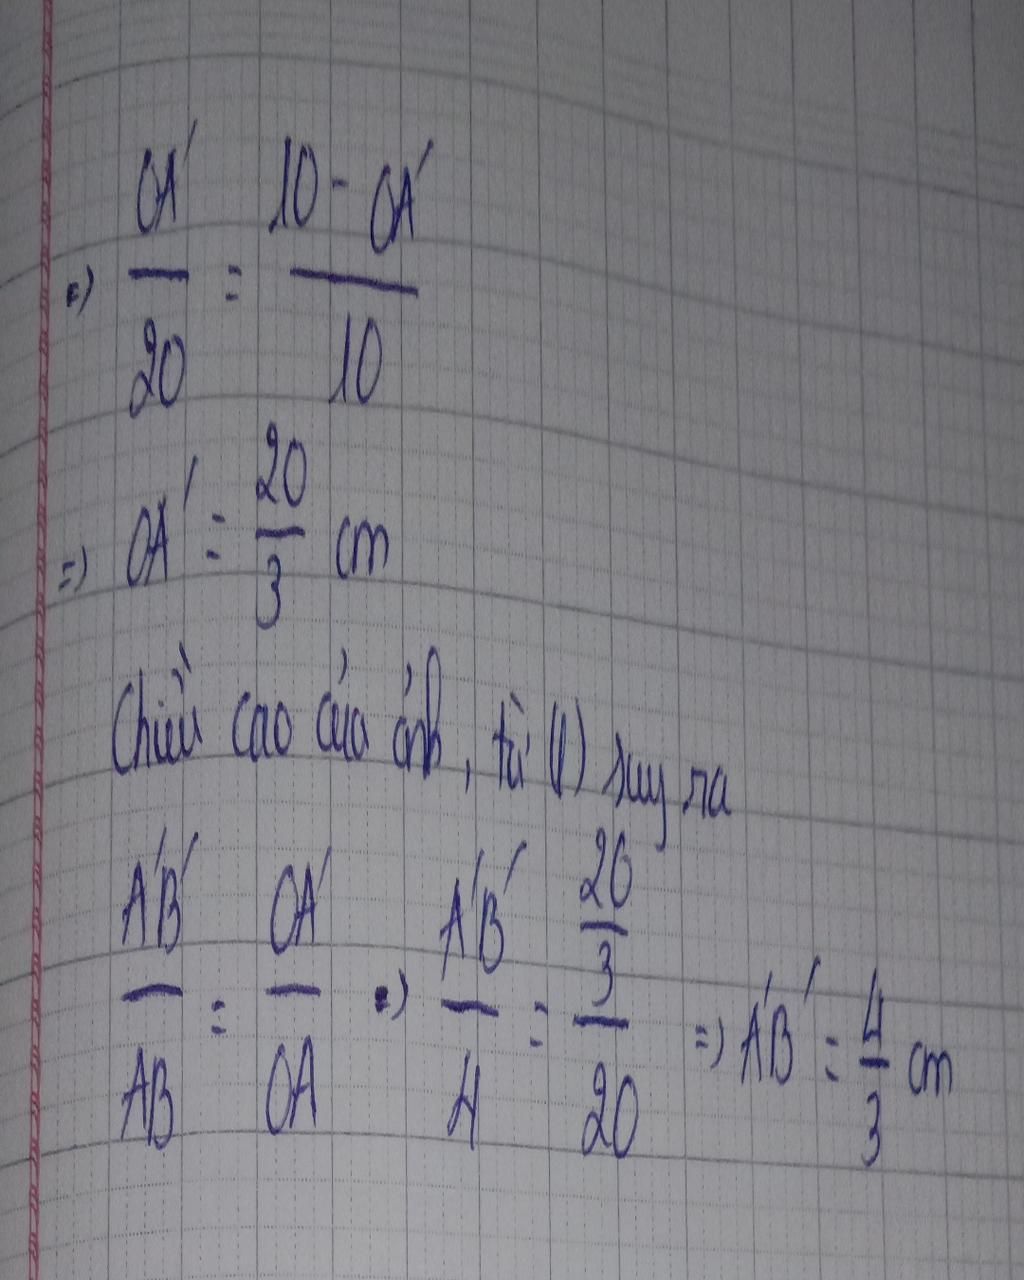 =) OA'/20 = 10 - OA'/10
=) OA' = 20/3 cm
Chiều cao của ảnh, từ (1) suy ra
A'B'/AB = OA'/OA =) A'B'/4 = 20/3/20 =) A'B' = 4/3 cm